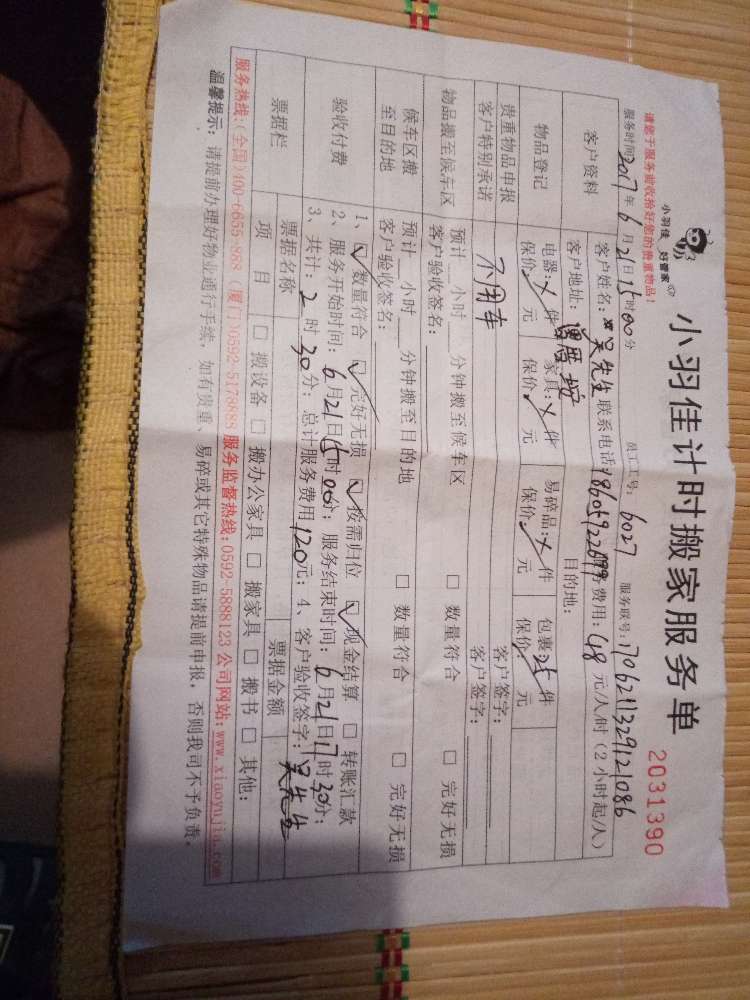 小羽佳 好管家
小羽佳计时搬家服务单
2031390
请您于服务前收拾好您的贵重物品！
服务时间 2017年6月21日15时00分 员工工号：6027 服务联号：1706211329121086
客户资料
客户姓名：吴先生 联系电话 务费用：48元/人/时（2小时起/人）
客户地址： 目的地：
物品登记
电器：×件 家具：×件 易碎品：×件 包裹 25件
保价 元 保价 元 保价 元 保价 元
贵重物品申报
客户特别承诺
不用车
客户签字：
客户签字：
物品搬至候车区
预计 小时 分钟搬至候车区 □ 数量符合 □ 完好无损
客户验收签名：
候车区搬
至目的地
预计 小时 分钟搬至目的地 □ 数量符合 □ 完好无损
客户验收签名：
验收付费
1、☑ 数量符合 ☑ 完好无损 ☑ 按需归位 ☑ 现金结算 □ 转账汇款
2、服务开始时间：6月21日15时00分；服务结束时间：6月21日17时30分；
3、共计：2时30分；总计服务费用120元；4、客户验收签字：吴先生
票据栏
票据名称 票据金额
项目 □ 搬设备 □ 搬办公家具 □ 搬家具 □ 搬书 □ 其他：
服务热线：(全国)400-6659-888 (厦门)0592-5178888 服务监督热线：0592-5888123 公司网站：www.xiaoyujia.com
温馨提示：请提前办理好物业通行手续，如有贵重、易碎或其它特殊物品请提前申报，否则我司不予负责。